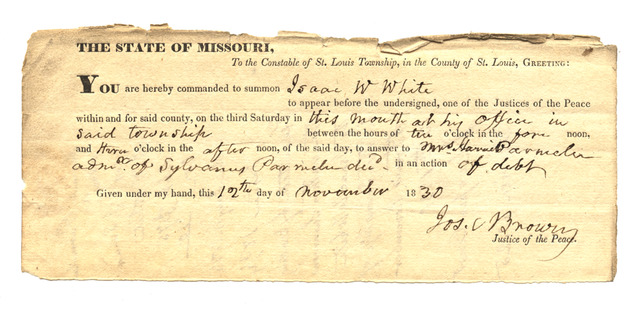 THE STATE OF MISSOURI,
To the Constable of St. Louis Township, in the County of St. Louis, GREETING:
YOU are hereby commanded to summon Isaac W White
to appear before the undersigned, one of the Justices of the Peace
within and for said county, on the third Saturday in this month at his office in
said township between the hours of ten o'clock in the fore noon,
and three o'clock in the after noon, of the said day, to answer to Mrs. Harriet Parmelee
admx. of Sylvanus Parmelee decd. in an action of debt
Given under my hand, this 12th day of November 1830
Jos. C Brown
Justice of the Peace.